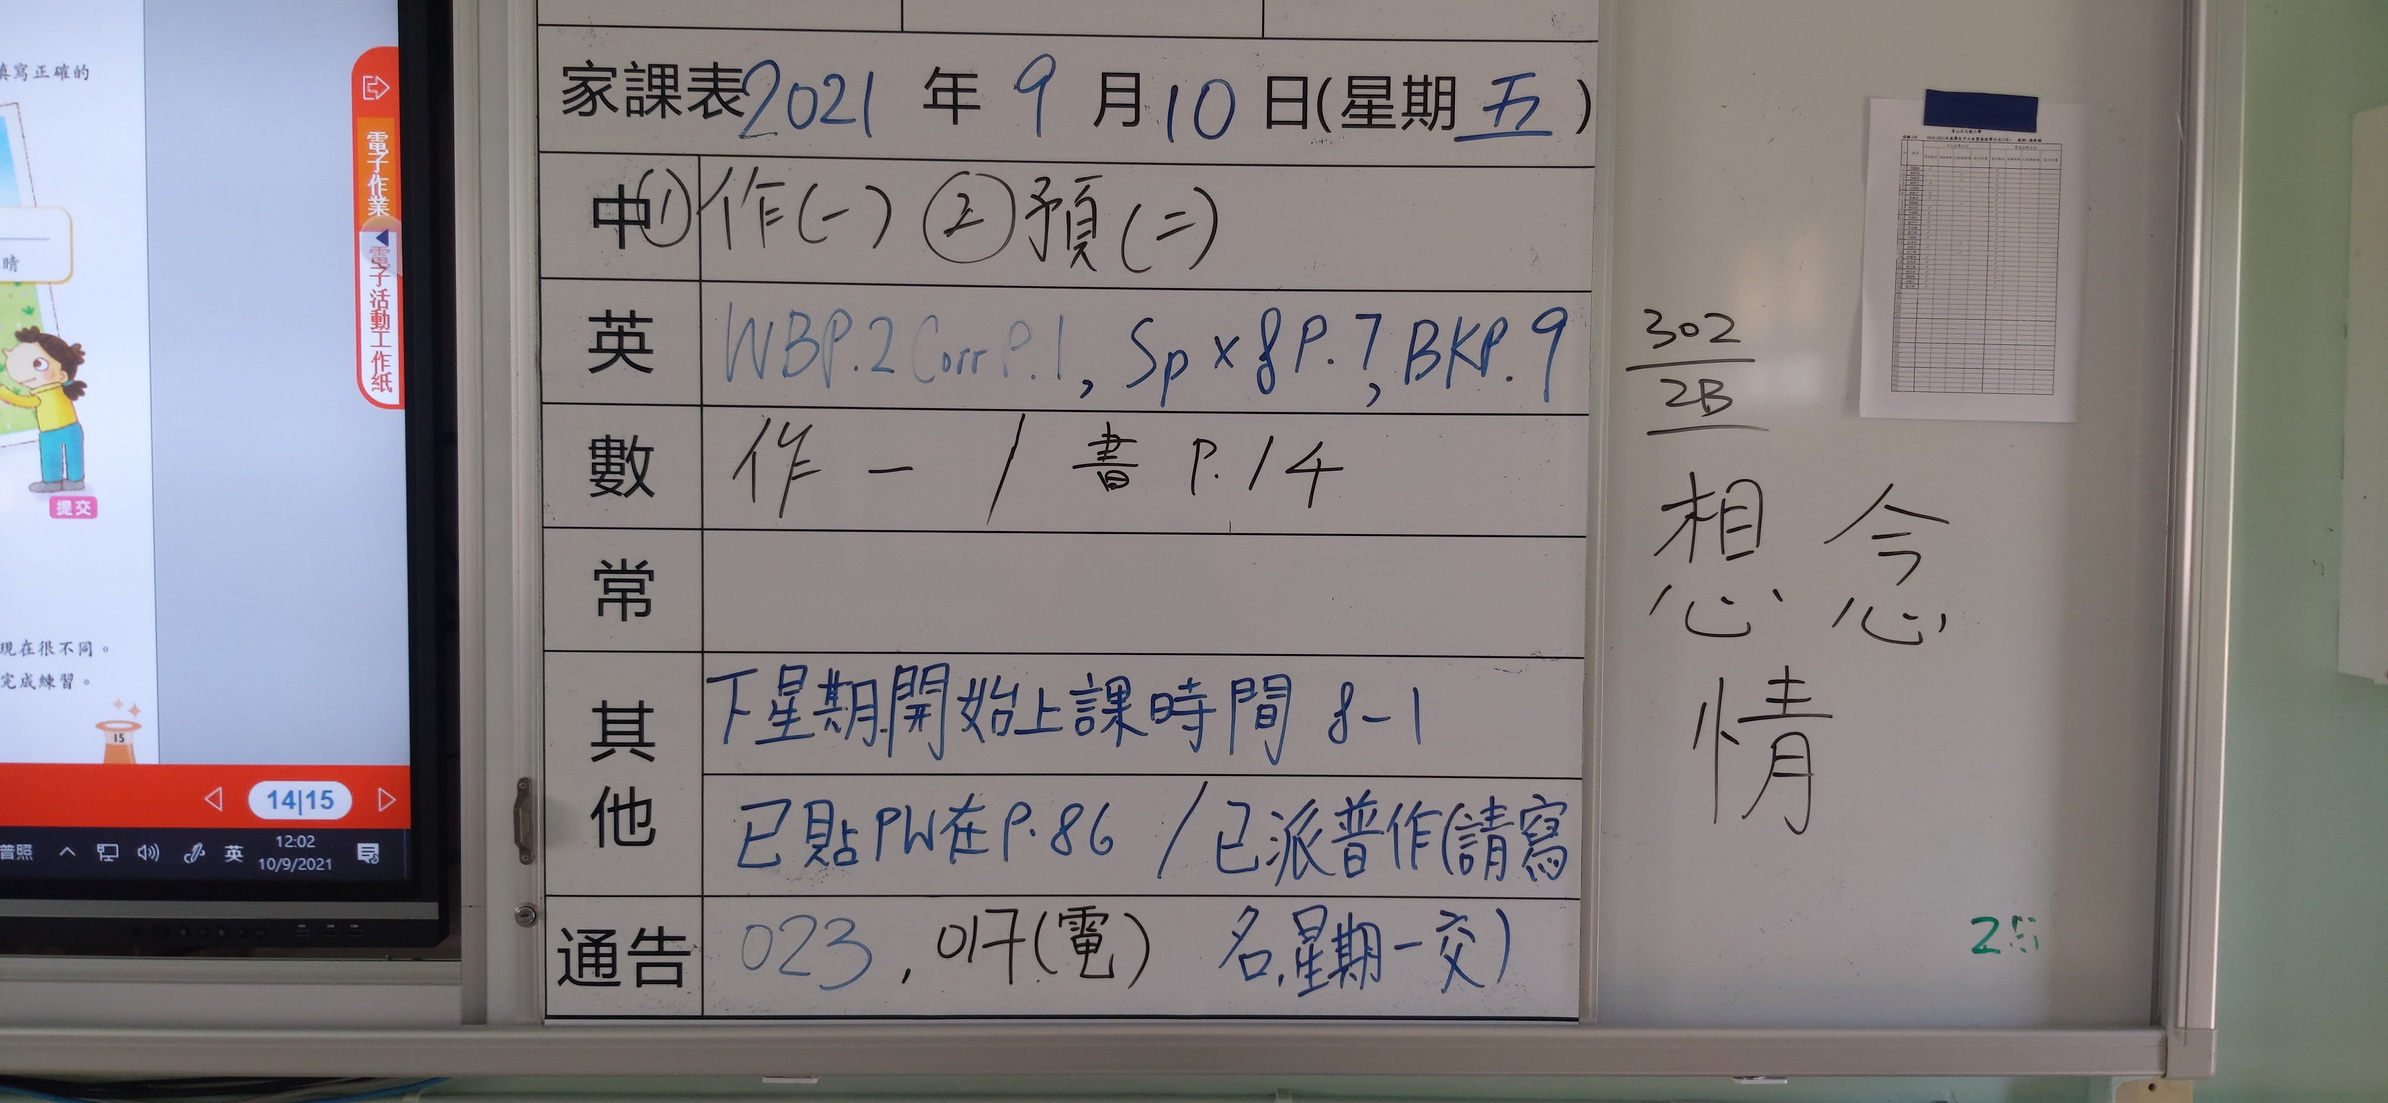 填寫正確的
晴
提交
現在很不同。
完成練習。
15
電子作業
電子活動工作紙
14|15
普照 英 12:02
10/9/2021
家課表2021 年 9 月 10 日(星期 五 )
中 ①作(一) ②預(二)
英 WBP.2 Corr P.1, Sp x 8 P.7, BKP.9
數 作 一 / 書 P.14
常
其他 下星期開始上課時間 8-1
已貼PW在P.86 / 已派普作(請寫
通告 023, 017(電) 名,星期一交)
302
2B
想 念
情